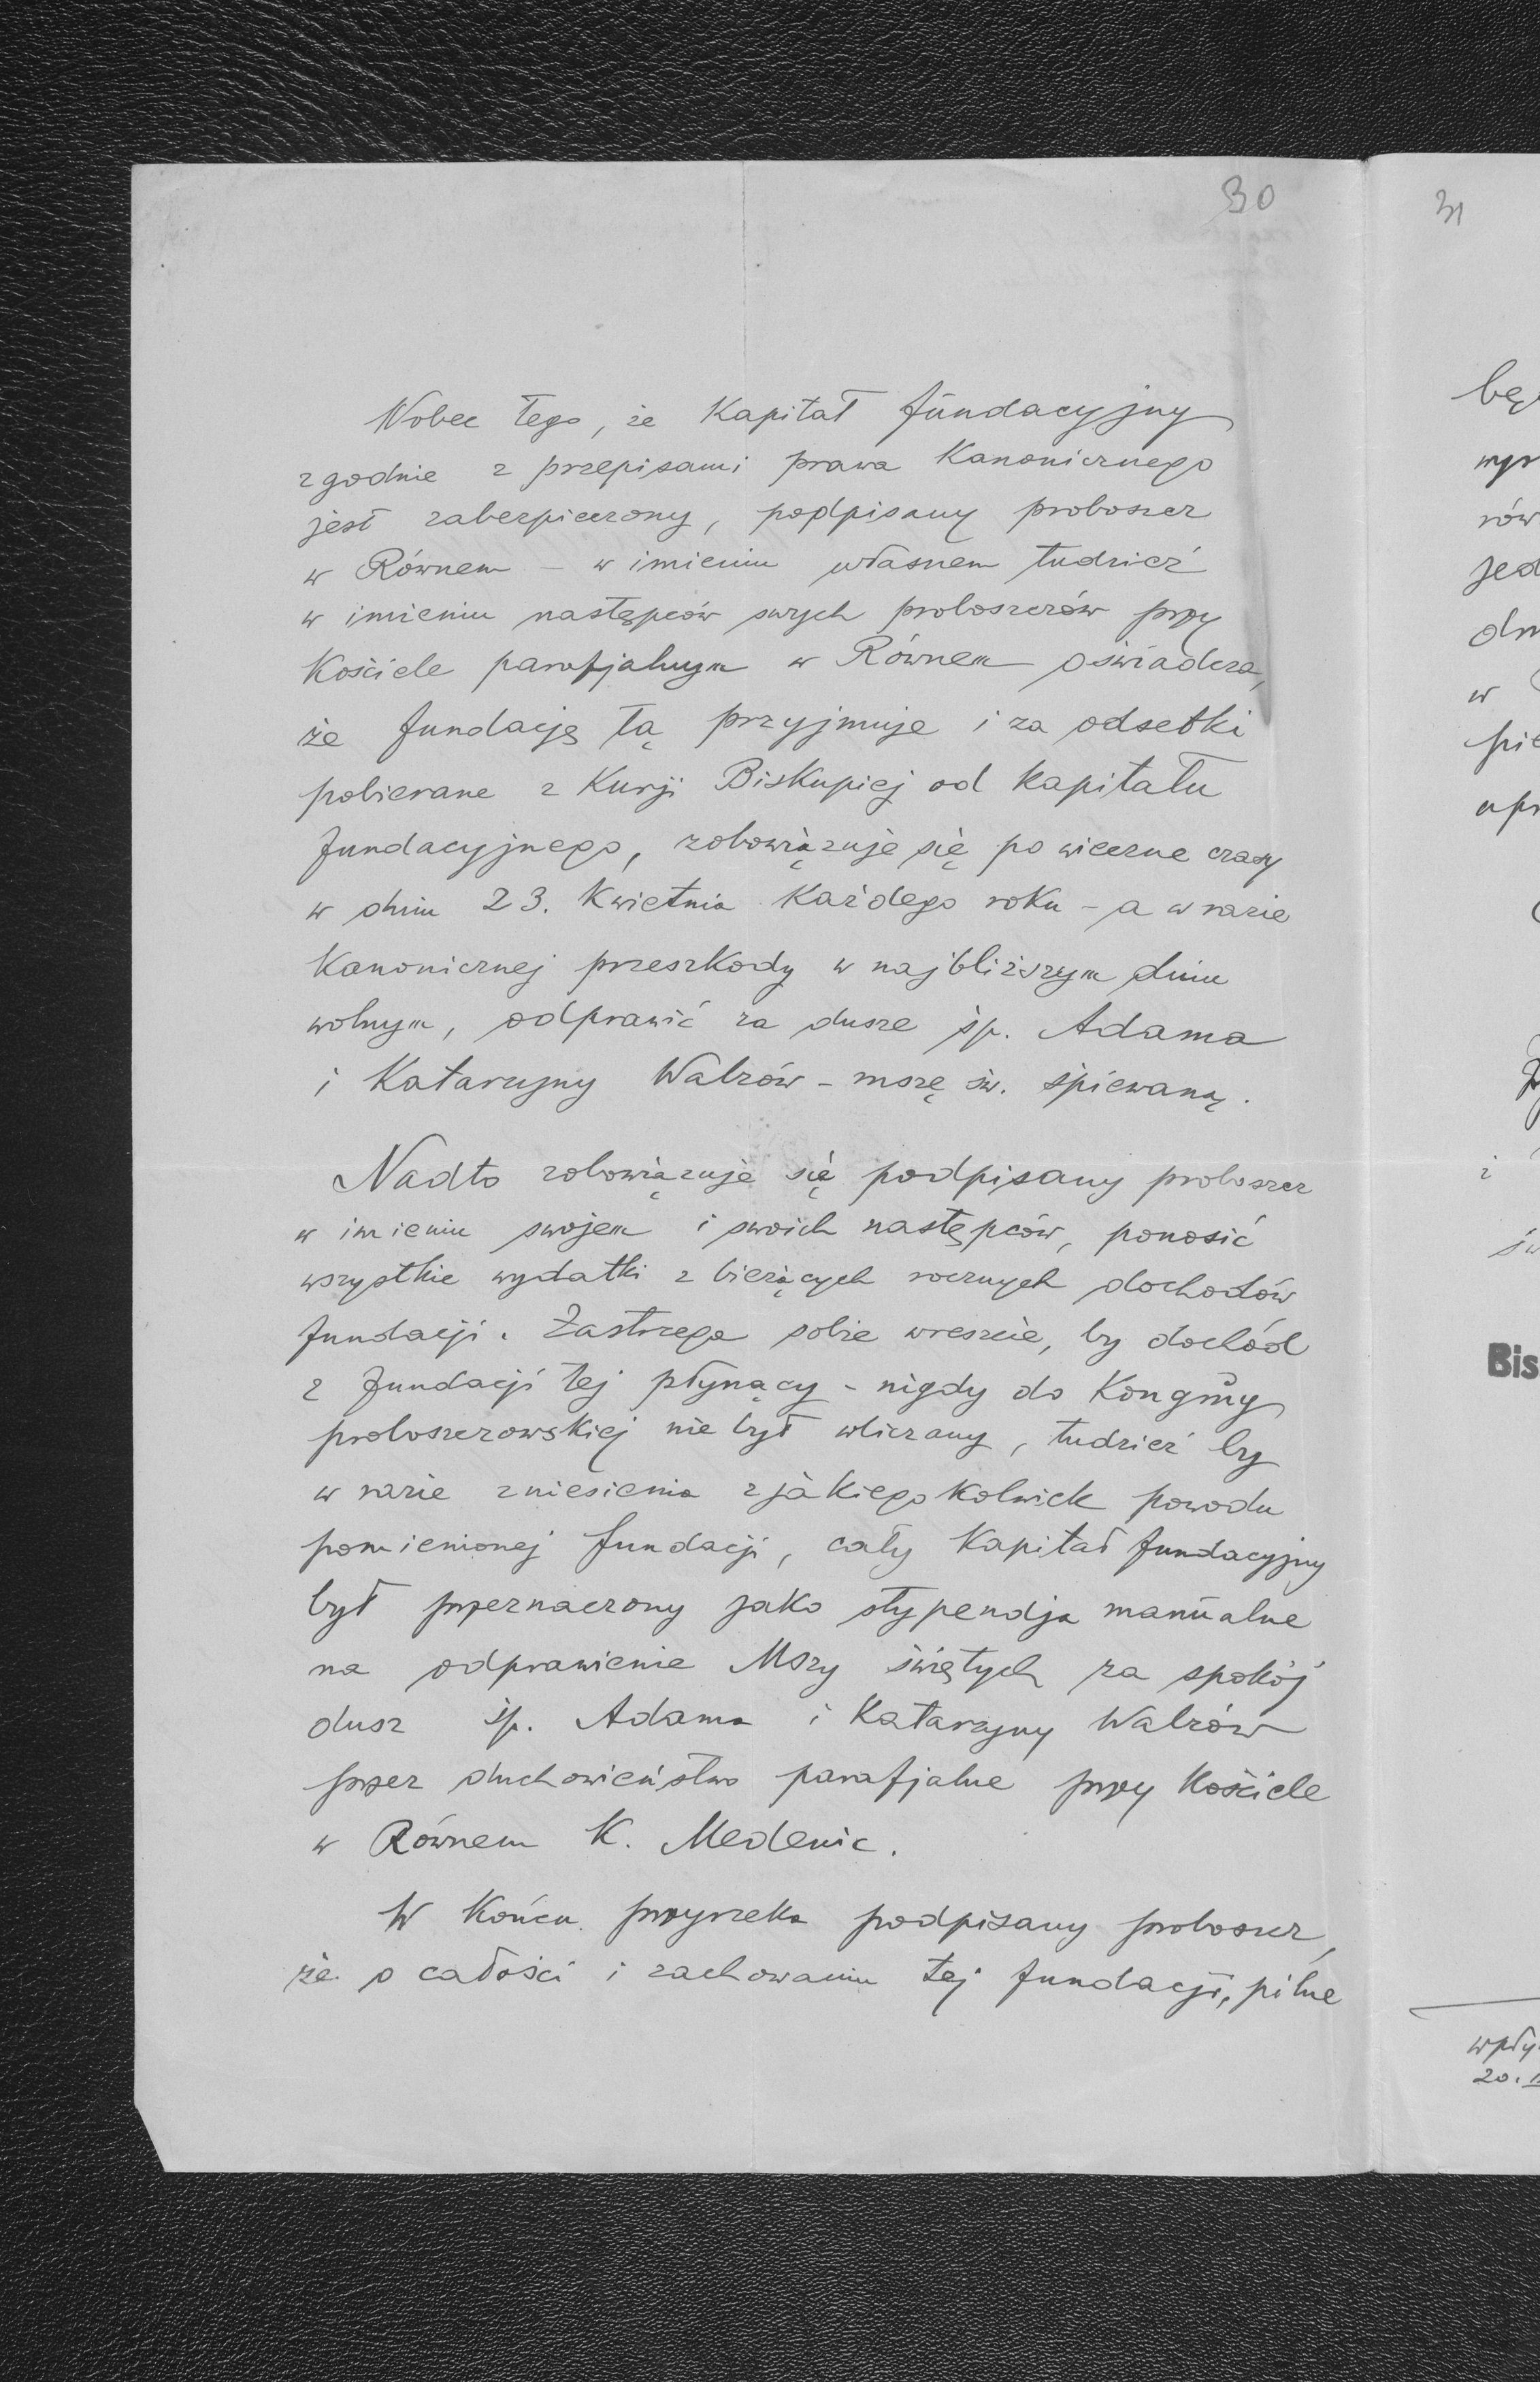 30
Wobec tego, że Kapitał fundacyjny
zgodnie z przepisami prawa Kanonicznego
jest zabezpieczony, podpisany proboszcz
w Równem – w imieniu własnem tudzież
w imieniu następców swych proboszczów przy
Kościele parafjalnym w Równem oświadcza,
że fundację tą przyjmuje i za odsetki
pobierane z Kurji Biskupiej od kapitału
fundacyjnego, zobowiązuje się po wieczne czasy
w dniu 23. Kwietnia Każdego roku – a w razie
Kanonicznej przeszkody w najbliższym dniu
wolnym, odprawić za dusze śp. Adama
i Katarzyny Walzów – mszę św. śpiewaną.
Nadto zobowiązuje się podpisany proboszcz
w imieniu swojem i swoich następców, ponosić
wszystkie wydatki z bieżących rocznych dochodów
fundacji. Zastrzega sobie wreszcie, by dochód
z fundacji tej płynący – nigdy do Kongruy
proboszczowskiej nie był wliczany, tudzież by
w razie zniesienia z jakiegokolwiek powodu
pomienionej fundacji, cały Kapitał fundacyjny
był przeznaczony jako stypendja manualne
na odprawienie Mszy świętych za spokój
dusz śp. Adama i Katarzyny Walzów
przez duchowieństwo parafjalne przy Kościele
w Równem K. Medenic.
W Końcu przyrzeka podpisany proboszcz,
że o całości i zachowaniu tej fundacji, pilne
31
rów
w
Bis
20.